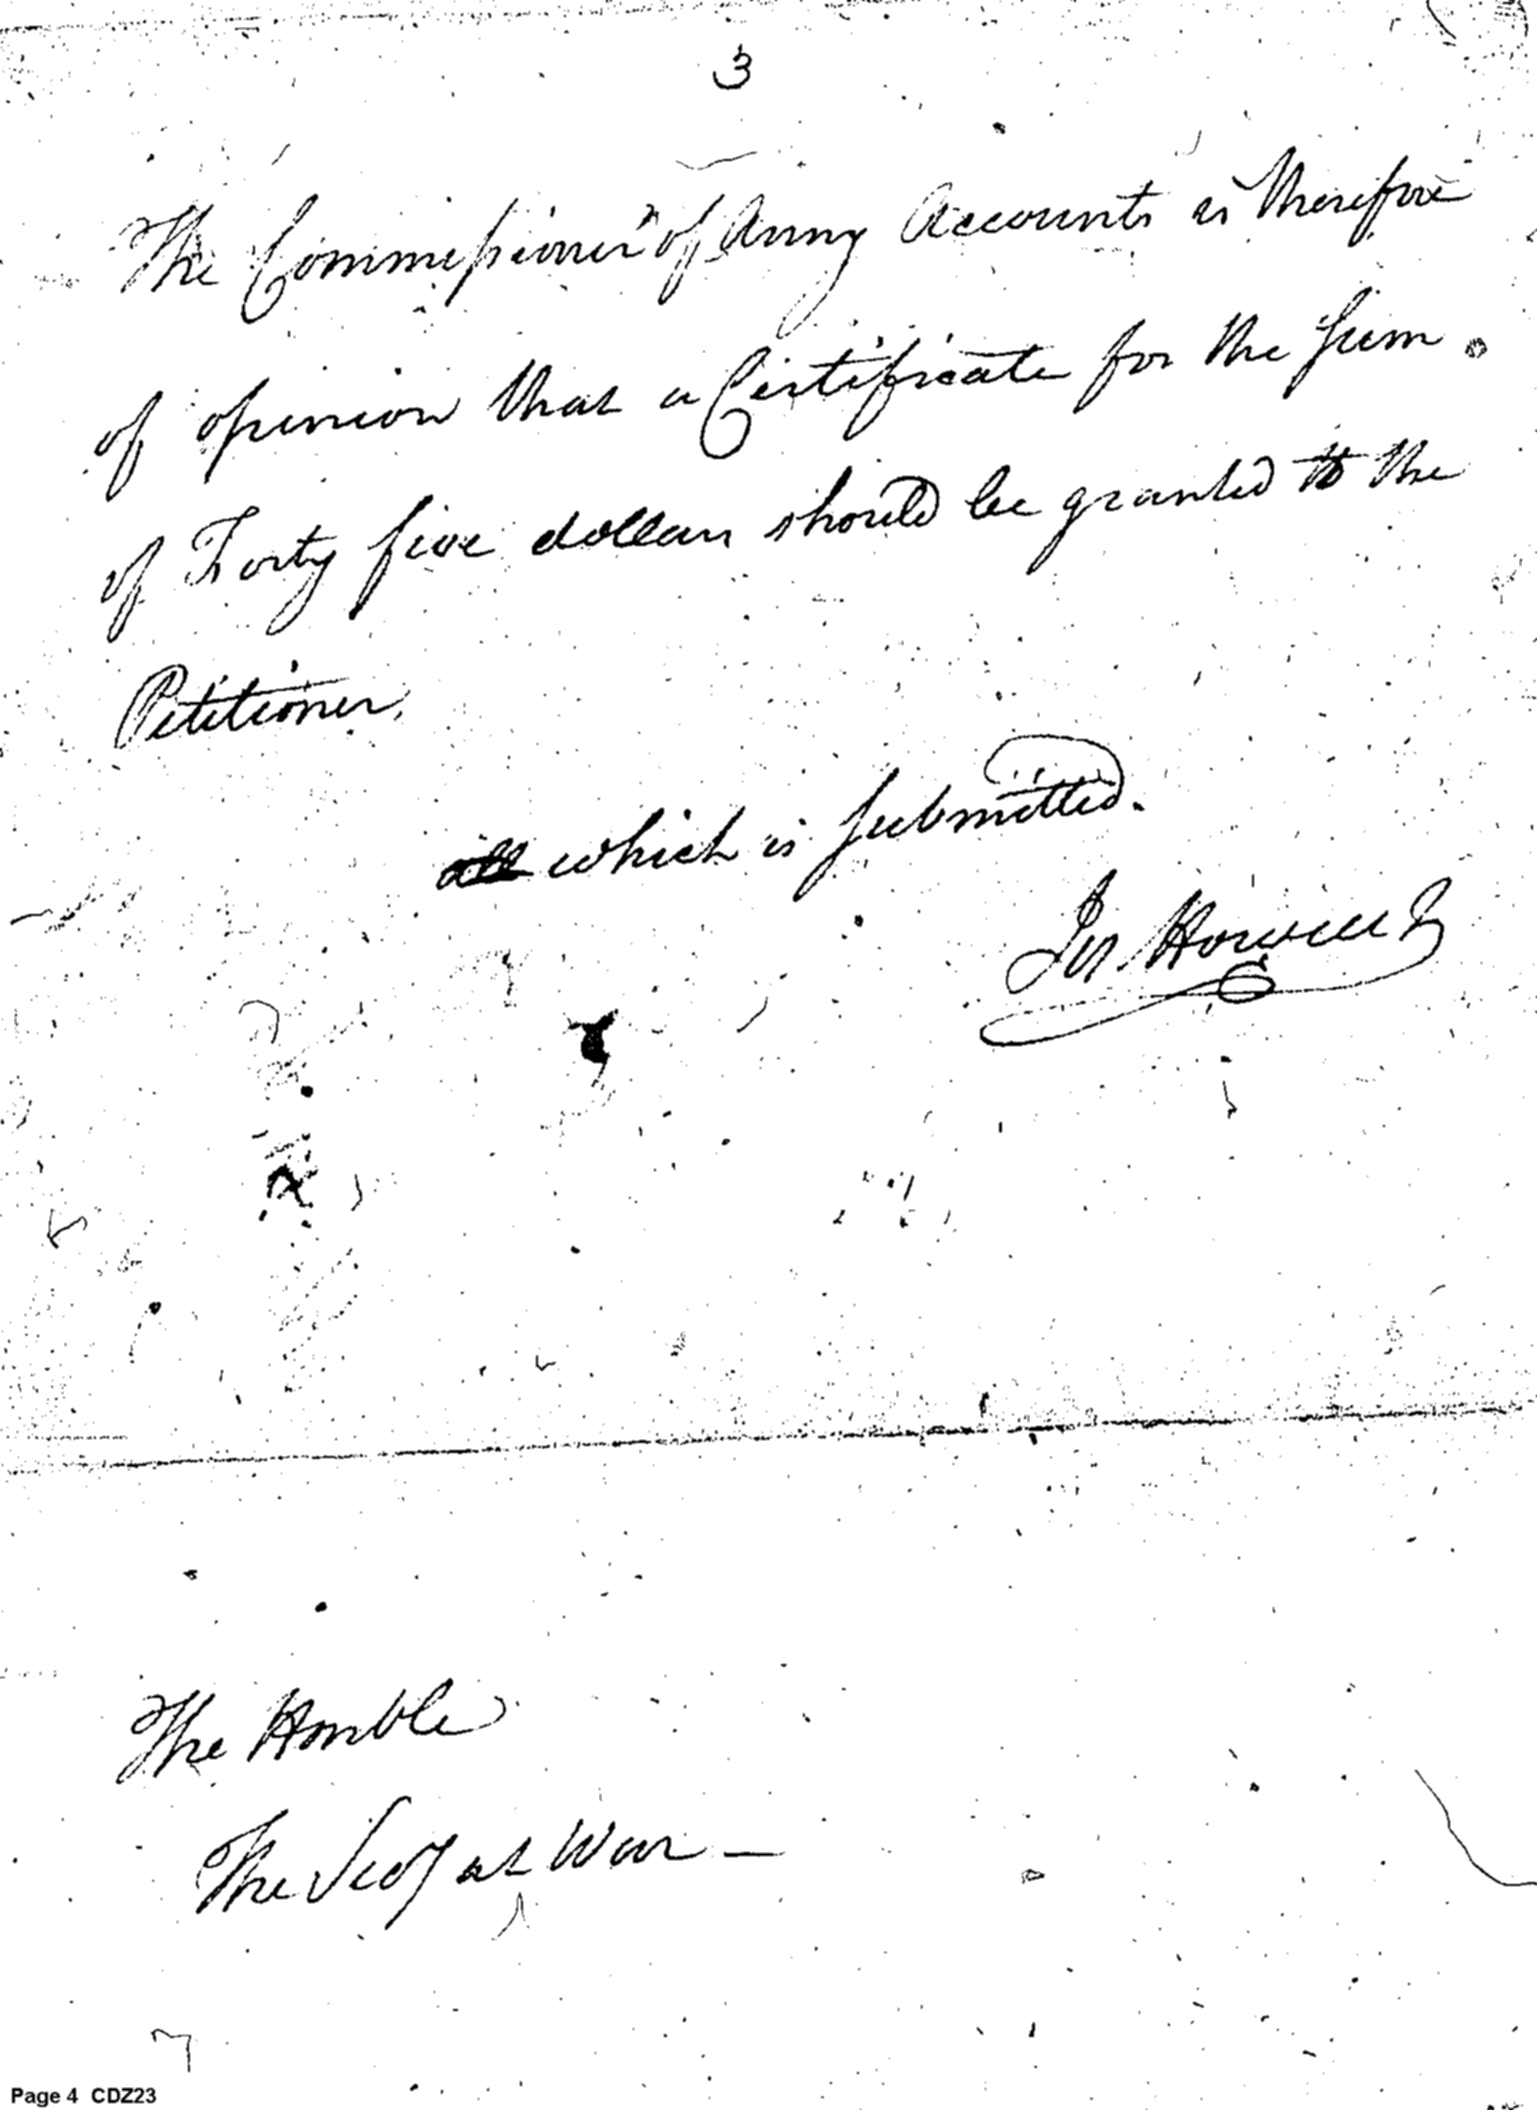 3
The Commissioner of Army Accounts is therefore
of opinion that a Certificate for the sum
of Forty five dollars should be granted to the
Petitioner.
all which is submitted.
Jos. Howell
The Honble
The Secy at War —
Page 4 CDZ23